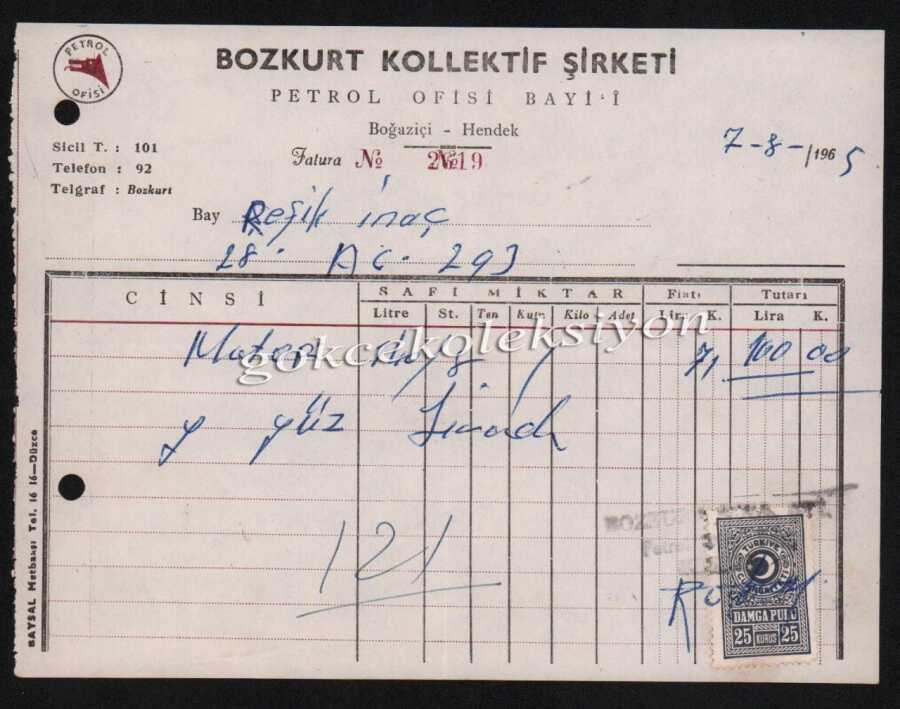 PETROL OFİSİ
BOZKURT KOLLEKTİF ŞİRKETİ
PETROL OFİSİ BAYİ'İ
Boğaziçi - Hendek
Sicil T. : 101
Telefon : 92
Telğraf : Bozkurt
Fatura № 2419
7-8-/1965
Bay Refik İnaç
28. AC. 293
CİNSİ SAFİ MİKTAR Fiatı Tutarı
Litre St. Ten Kutu Kilo Adet Lira K. Lira K.
Motorin 71 100 00
gokcekoleksiyon
y yüz Liradır
121
BOZKURT
TÜRKİYE CUMHURİYETİ
DAMGA PULU
25 KURUŞ 25
BAYSAL Matbaası Tel. 16 16—Düzce